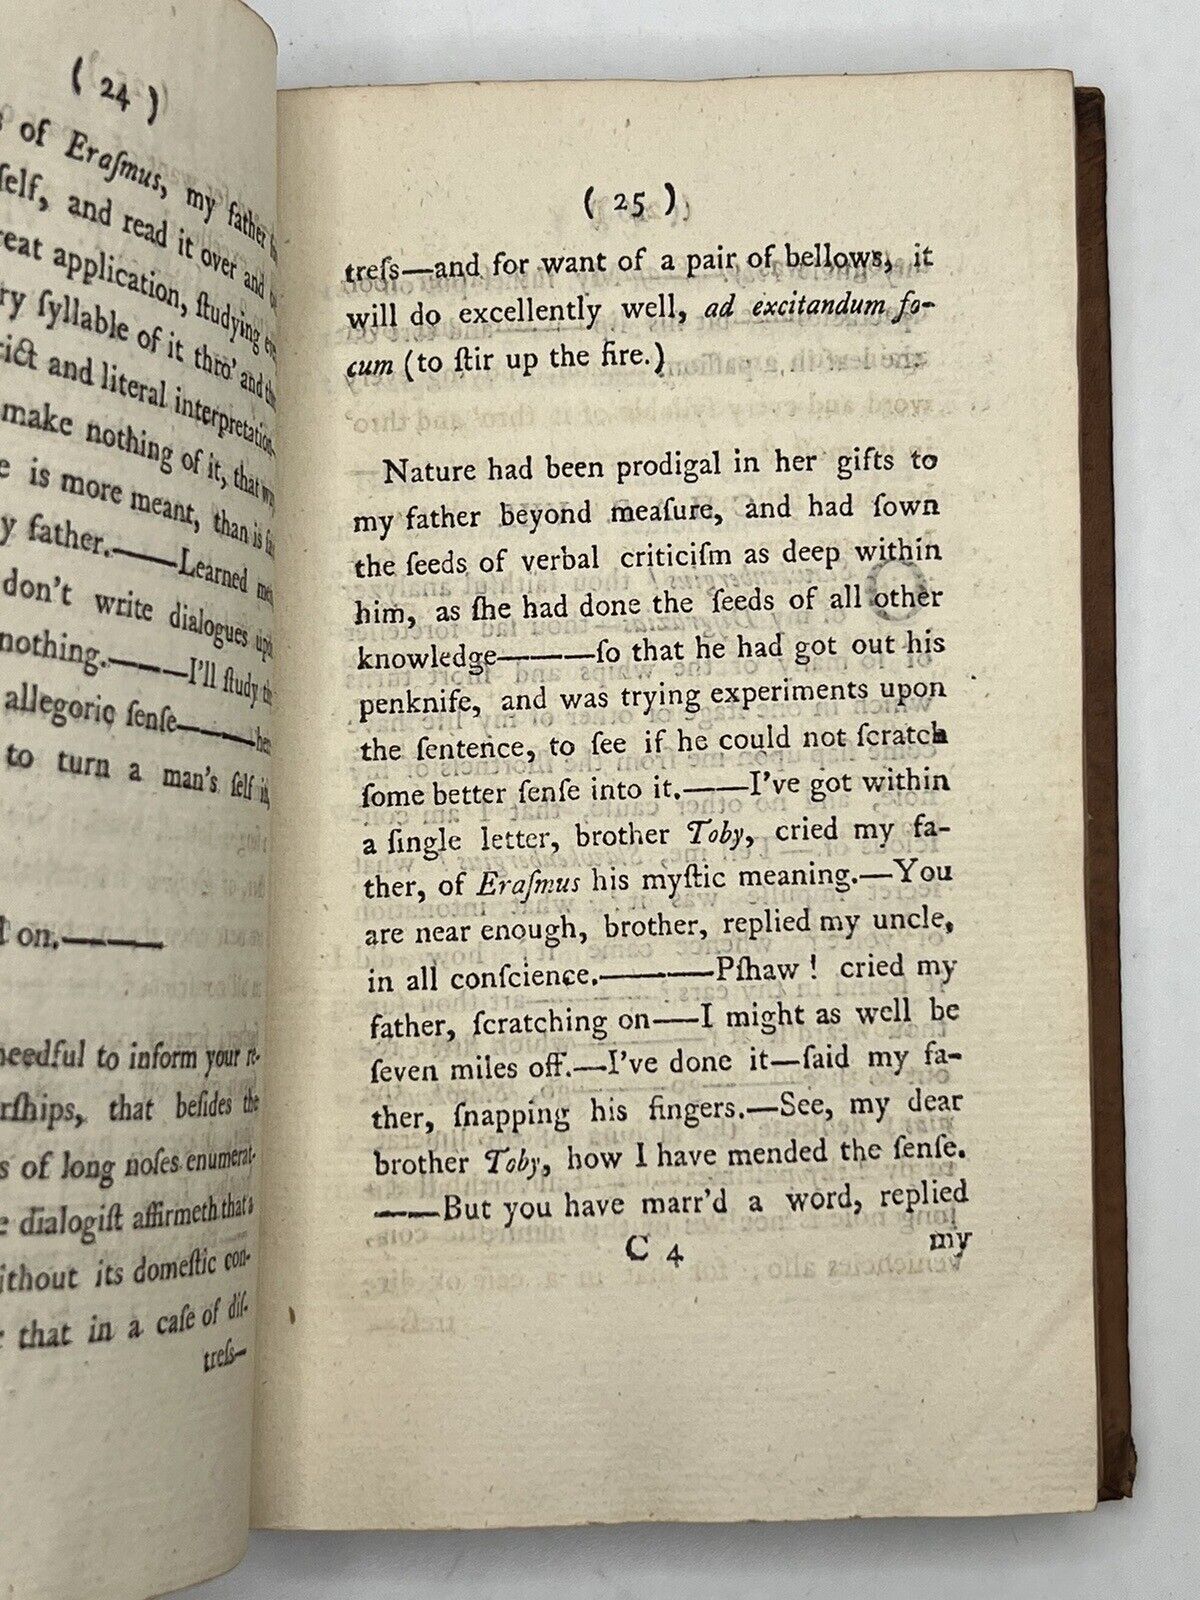 ( 24 )
of Eraſmus, my father
ſelf, and read it over and
application, ſtudying
ſyllable of it thro' and
and literal interpretation
make nothing of it, that
is more meant, than is
father.——Learned
don't write dialogues
nothing.——I'll ſtudy
allegoric ſenſe——
to turn a man's ſelf
on.——
needful to inform your re-
that beſides the
of long noſes enumerat-
dialogiſt affirmeth that a
without its domeſtic con-
that in a caſe of diſ-
treſs—
( 25 )
treſs—and for want of a pair of bellows, it
will do excellently well, ad excitandum fo-
cum (to ſtir up the fire.)
Nature had been prodigal in her gifts to
my father beyond meaſure, and had ſown
the ſeeds of verbal criticiſm as deep within
him, as ſhe had done the ſeeds of all other
knowledge———ſo that he had got out his
penknife, and was trying experiments upon
the ſentence, to ſee if he could not ſcratch
ſome better ſenſe into it.——I've got within
a ſingle letter, brother Toby, cried my fa-
ther, of Eraſmus his myſtic meaning.—You
are near enough, brother, replied my uncle,
in all conſcience.———Pſhaw ! cried my
father, ſcratching on——I might as well be
ſeven miles off.—I've done it—ſaid my fa-
ther, ſnapping his fingers.—See, my dear
brother Toby, how I have mended the ſenſe.
——But you have marr'd a word, replied
C 4
my